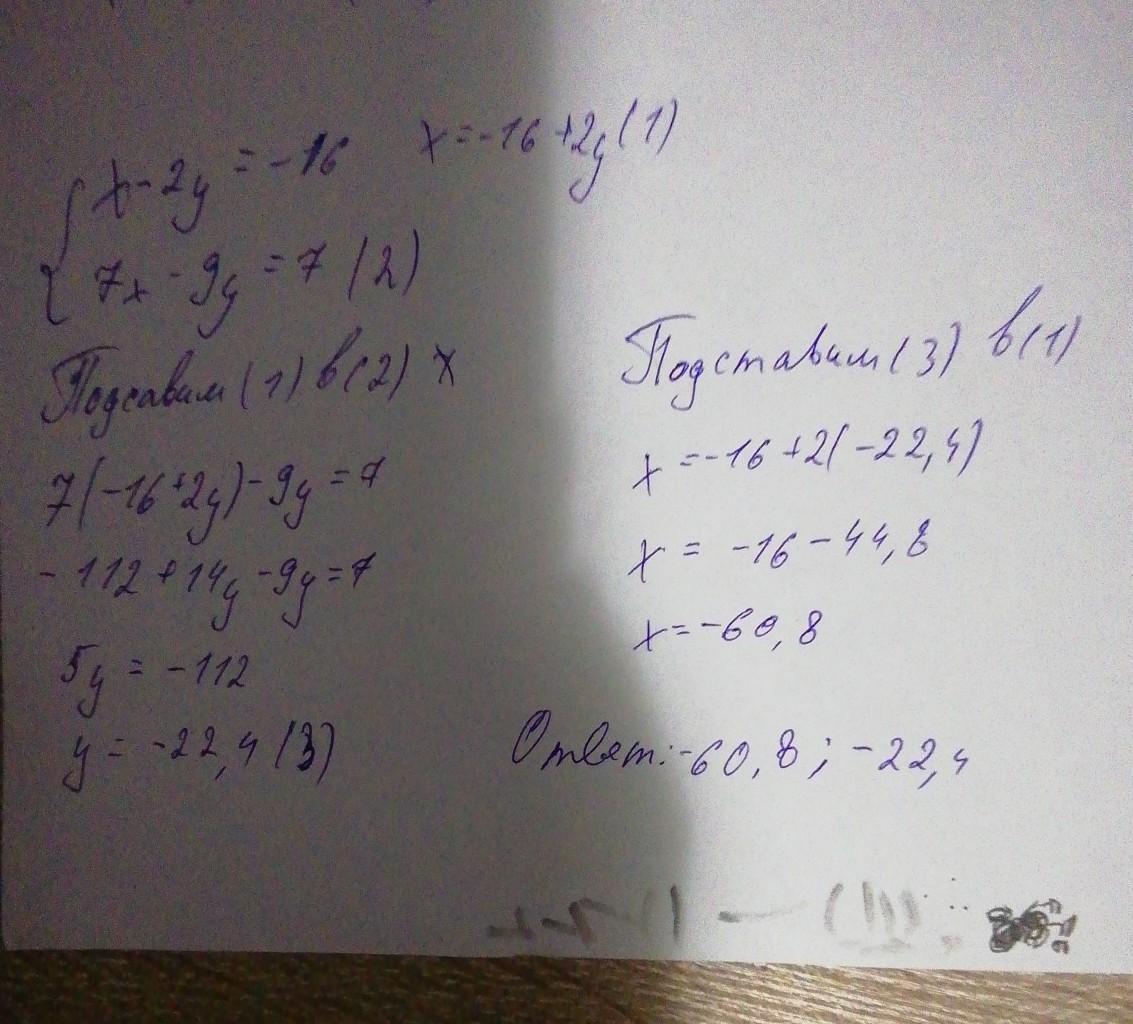 x-2y=-16 x=-16+2y(1)
7x-9y=7 (2)
Подсавим(1)в(2) x
7(-16+2y)-9y=7
-112+14y-9y=7
5y=-112
y=-22,4 (3)
Подставим(3) в(1)
x=-16+2(-22,4)
x=-16-44,8
x=-60,8
Ответ:-60,8;-22,4